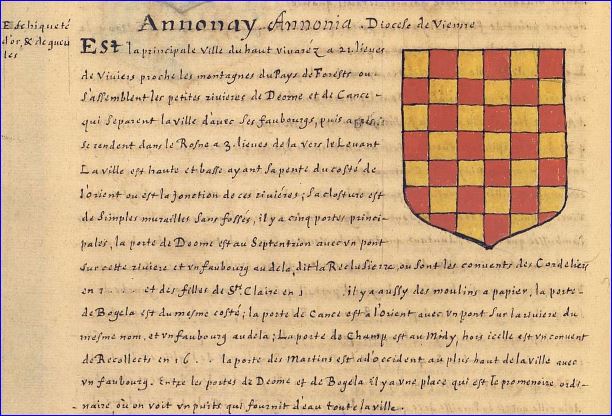 Annonay Annonia Diocese de Vienne
Eschiqueté
d'or, & de gueu
les
Est la principale ville du haut vivarez a 21. lieues
de Viviers proche les montagnes du Pays de Forests ou
s'assemblent les petites rivieres de Deome et de Cance
qui separent la ville d'avec ses faubourgs, puis apres
se rendent dans le Rosne a 3. lieues de la vers le Levant
La ville est haute et basse ayant sa pente du costé de
l'orient ou est la jonction de ces riviéres; sa closture est
de simples murailles sans fossés, il y a cinq portes princi-
pales, la porte de Deome est au Septentrion avec vn pont
sur cette riviere et vn faubourg au dela, dit la Reclusiere, ou sont les convents des Cordeliers
en 1 et des filles de Ste. Claire en 1 , il y a aussy des moulins a papier, la porte
de Bogela est du mesme costé; la porte de Cance est a l'orient avec vn pont sur la riuiere du
mesme nom, et vn faubourg au dela; La porte de Champ est au Midy, hors icelle est vn convent
de Recollects en 16 la porte des Martins est ad occident au plus haut de la ville avec
vn faubourg. Entre les portes de Deome et de Bogela il y a vne place qui est le promenoire ordi-
naire où on voit vn puits qui fournit d'eau toute la ville.